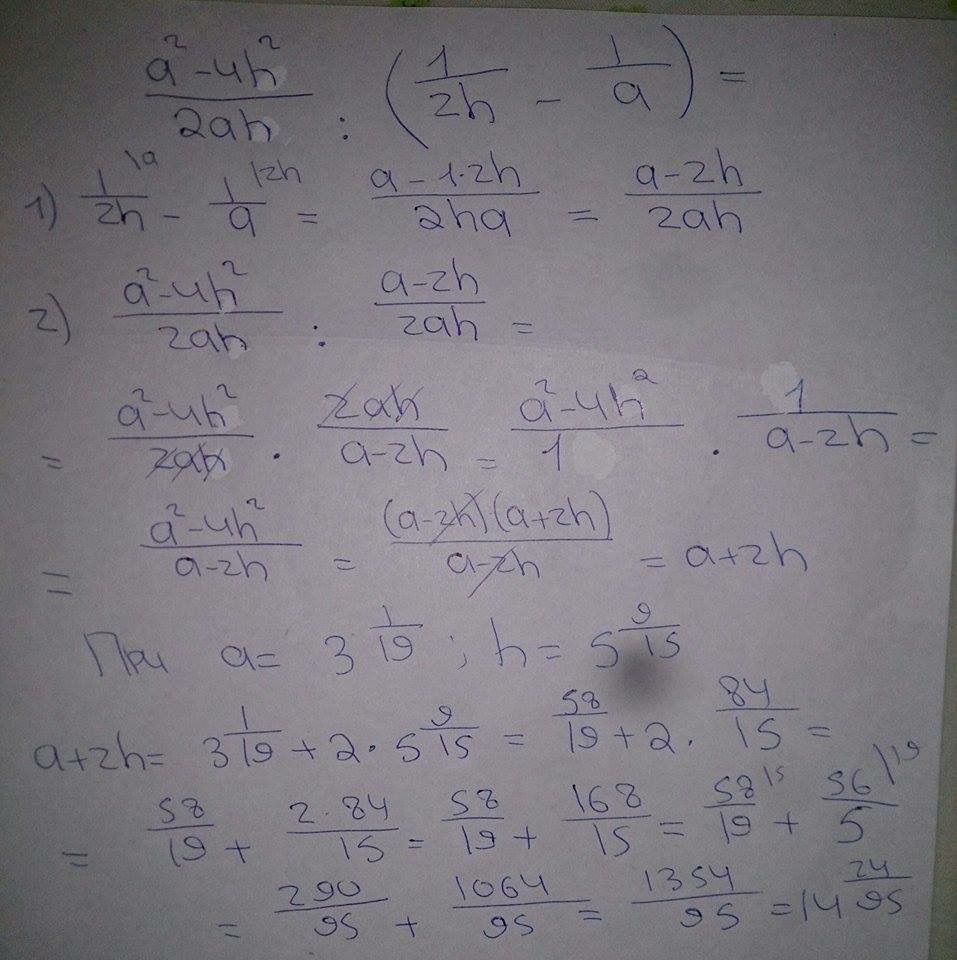 (a²-4h²)/(2ah) : (1/(2h) - 1/a) =
1) 1/(2h) \a - 1/a |2h = (a-1·2h)/(2ha) = (a-2h)/(2ah)
2) (a²-4h²)/(2ah) : (a-2h)/(2ah) =
= (a²-4h²)/(2ah) · (2ah)/(a-2h) = (a²-4h²)/1 · 1/(a-2h) =
= (a²-4h²)/(a-2h) = (a-2h)(a+2h)/(a-2h) = a+2h
При a= 3 1/19 ; h = 5 9/15
a+2h= 3 1/19 + 2·5 9/15 = 58/19 + 2· 84/15 =
= 58/19 + (2·84)/15 = 58/19 + 168/15 = 58/19 |5 + 56/5 |19
= 290/95 + 1064/95 = 1354/95 = 14 24/95